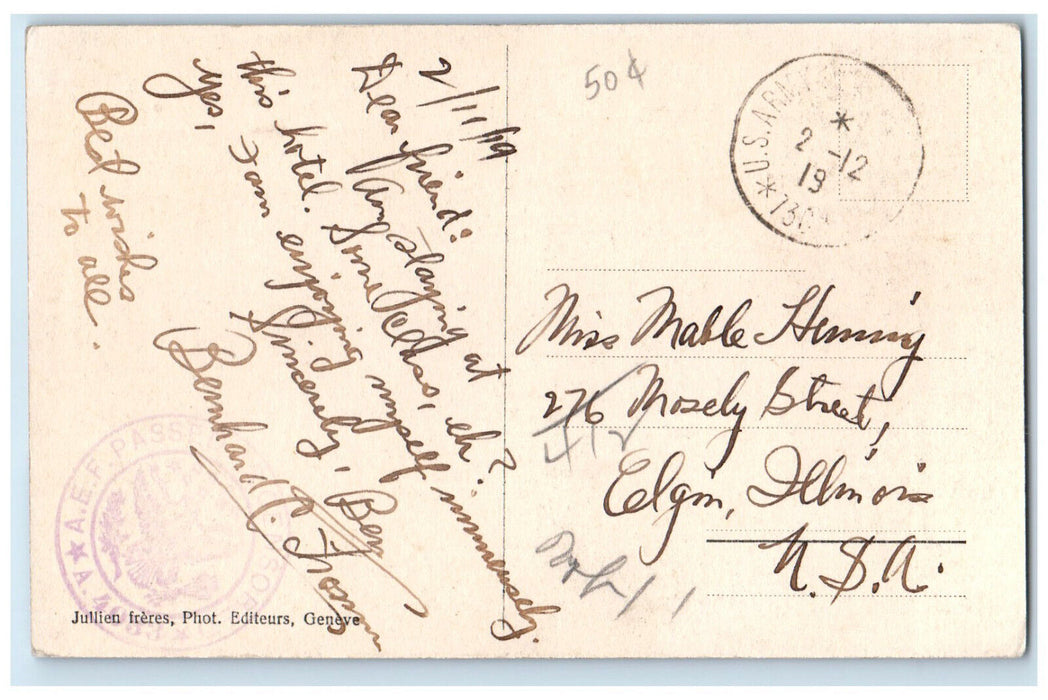 2/11/19
Dear friend:
Am staying at
this hotel. Some Pelhas, eh?
Yes, I am enjoying myself immensely.
Sincerely, Ben
Bernhard
Best wishes
to all.
50¢
U.S. ARMY
2-12
19
Miss Mable Heming
276 Mosely Street,
412
Elgin, Illinois
U.S.A.
A.E.F. PASSED
Jullien frères, Phot. Editeurs, Genève